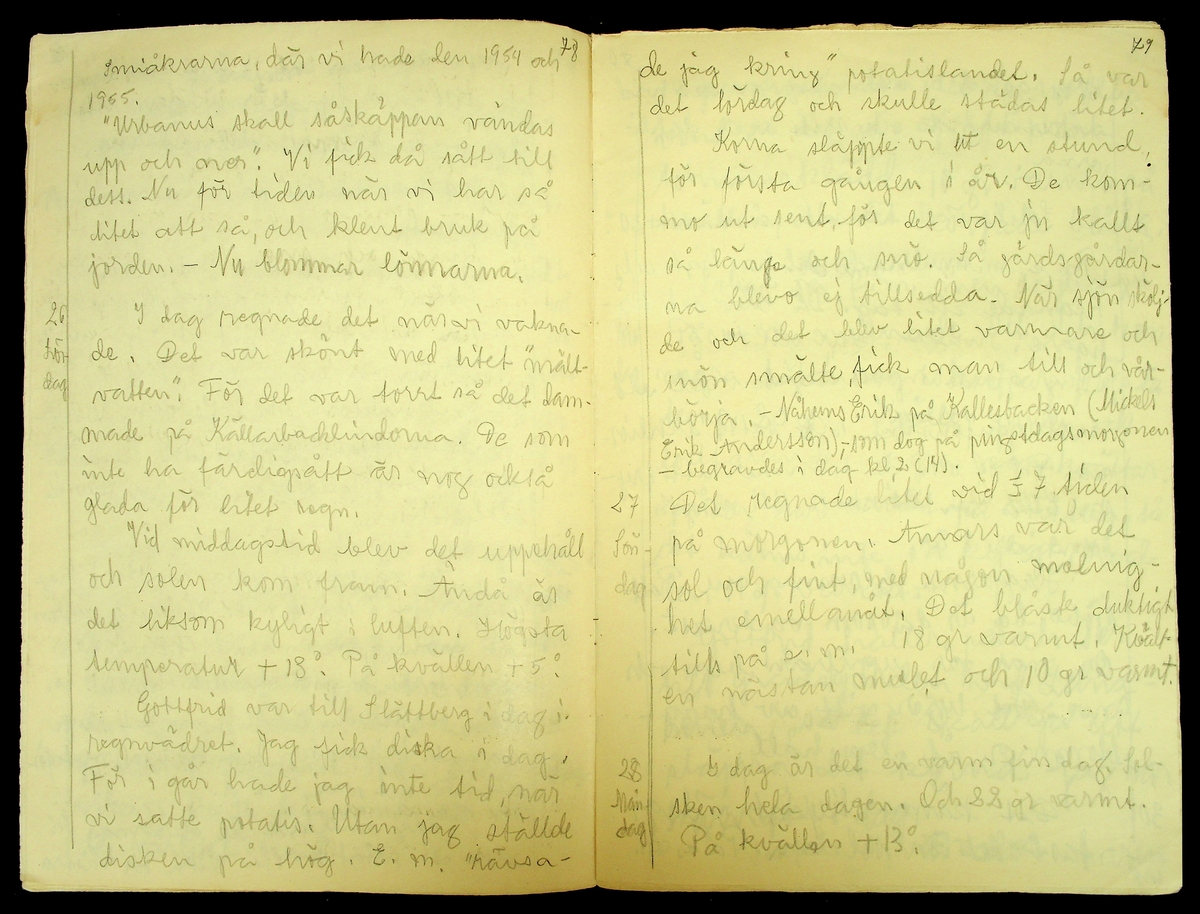 78
Smååkrarna, där vi hade den 1954 och
1955.
"Urbanus skall såskäppan vändas
upp och ner". Vi fick då sått till
dess. Nu för tiden när vi har så
litet att så, och klent bruk på
jorden. – Nu blommar lönnarna.
26
Lör-
dag
I dag regnade det när vi vakna-
de. Det var skönt med litet "mält-
vatten". För det var torrt så det dam-
made på Källarbacklindorna. De som
inte ha färdigsått är nog också
glada för litet regn.
Vid middagstid blev det uppehåll
och solen kom fram. Ändå är
det liksom kyligt i luften. Högsta
temperatur +13°. På kvällen +5°.
Gottfrid var till Slättberg i dag i
regnvädret. Jag fick diska i dag.
För i går hade jag inte tid, när
vi satte potatis. Utan jag ställde
disken på hög. E. m. "rävsa-
79
de jag kring" potatislandet. Så var
det lördag och skulle städas litet.
Korna släppte vi ut en stund,
för första gången i år. De kom-
mo ut sent, för det var ju kallt
så länge och snö. Så gärdsgårdar-
na blevo ej tillsedda. När sjön skölj-
de och det blev litet varmare och
snön smälte, fick man till och vår-
börja. – Erik på Kallesbacken (Mickels
Erik Andersson), – som dog på pingstdagsmorgonen
– begravdes i dag kl 2 (14).
27
Sön-
dag
Det regnade litet vid ½ 7 tiden
på morgonen. Annars var det
sol och fint, med någon molnig-
het emellanåt. Det blåste duktigt
tills på e. m. 18 gr varmt. Kväll-
en nästan mulet och 10 gr varmt.
28
Mån-
dag
I dag är det en varm fin dag. Sol-
sken hela dagen. Och 22 gr varmt.
På kvällen +13°.